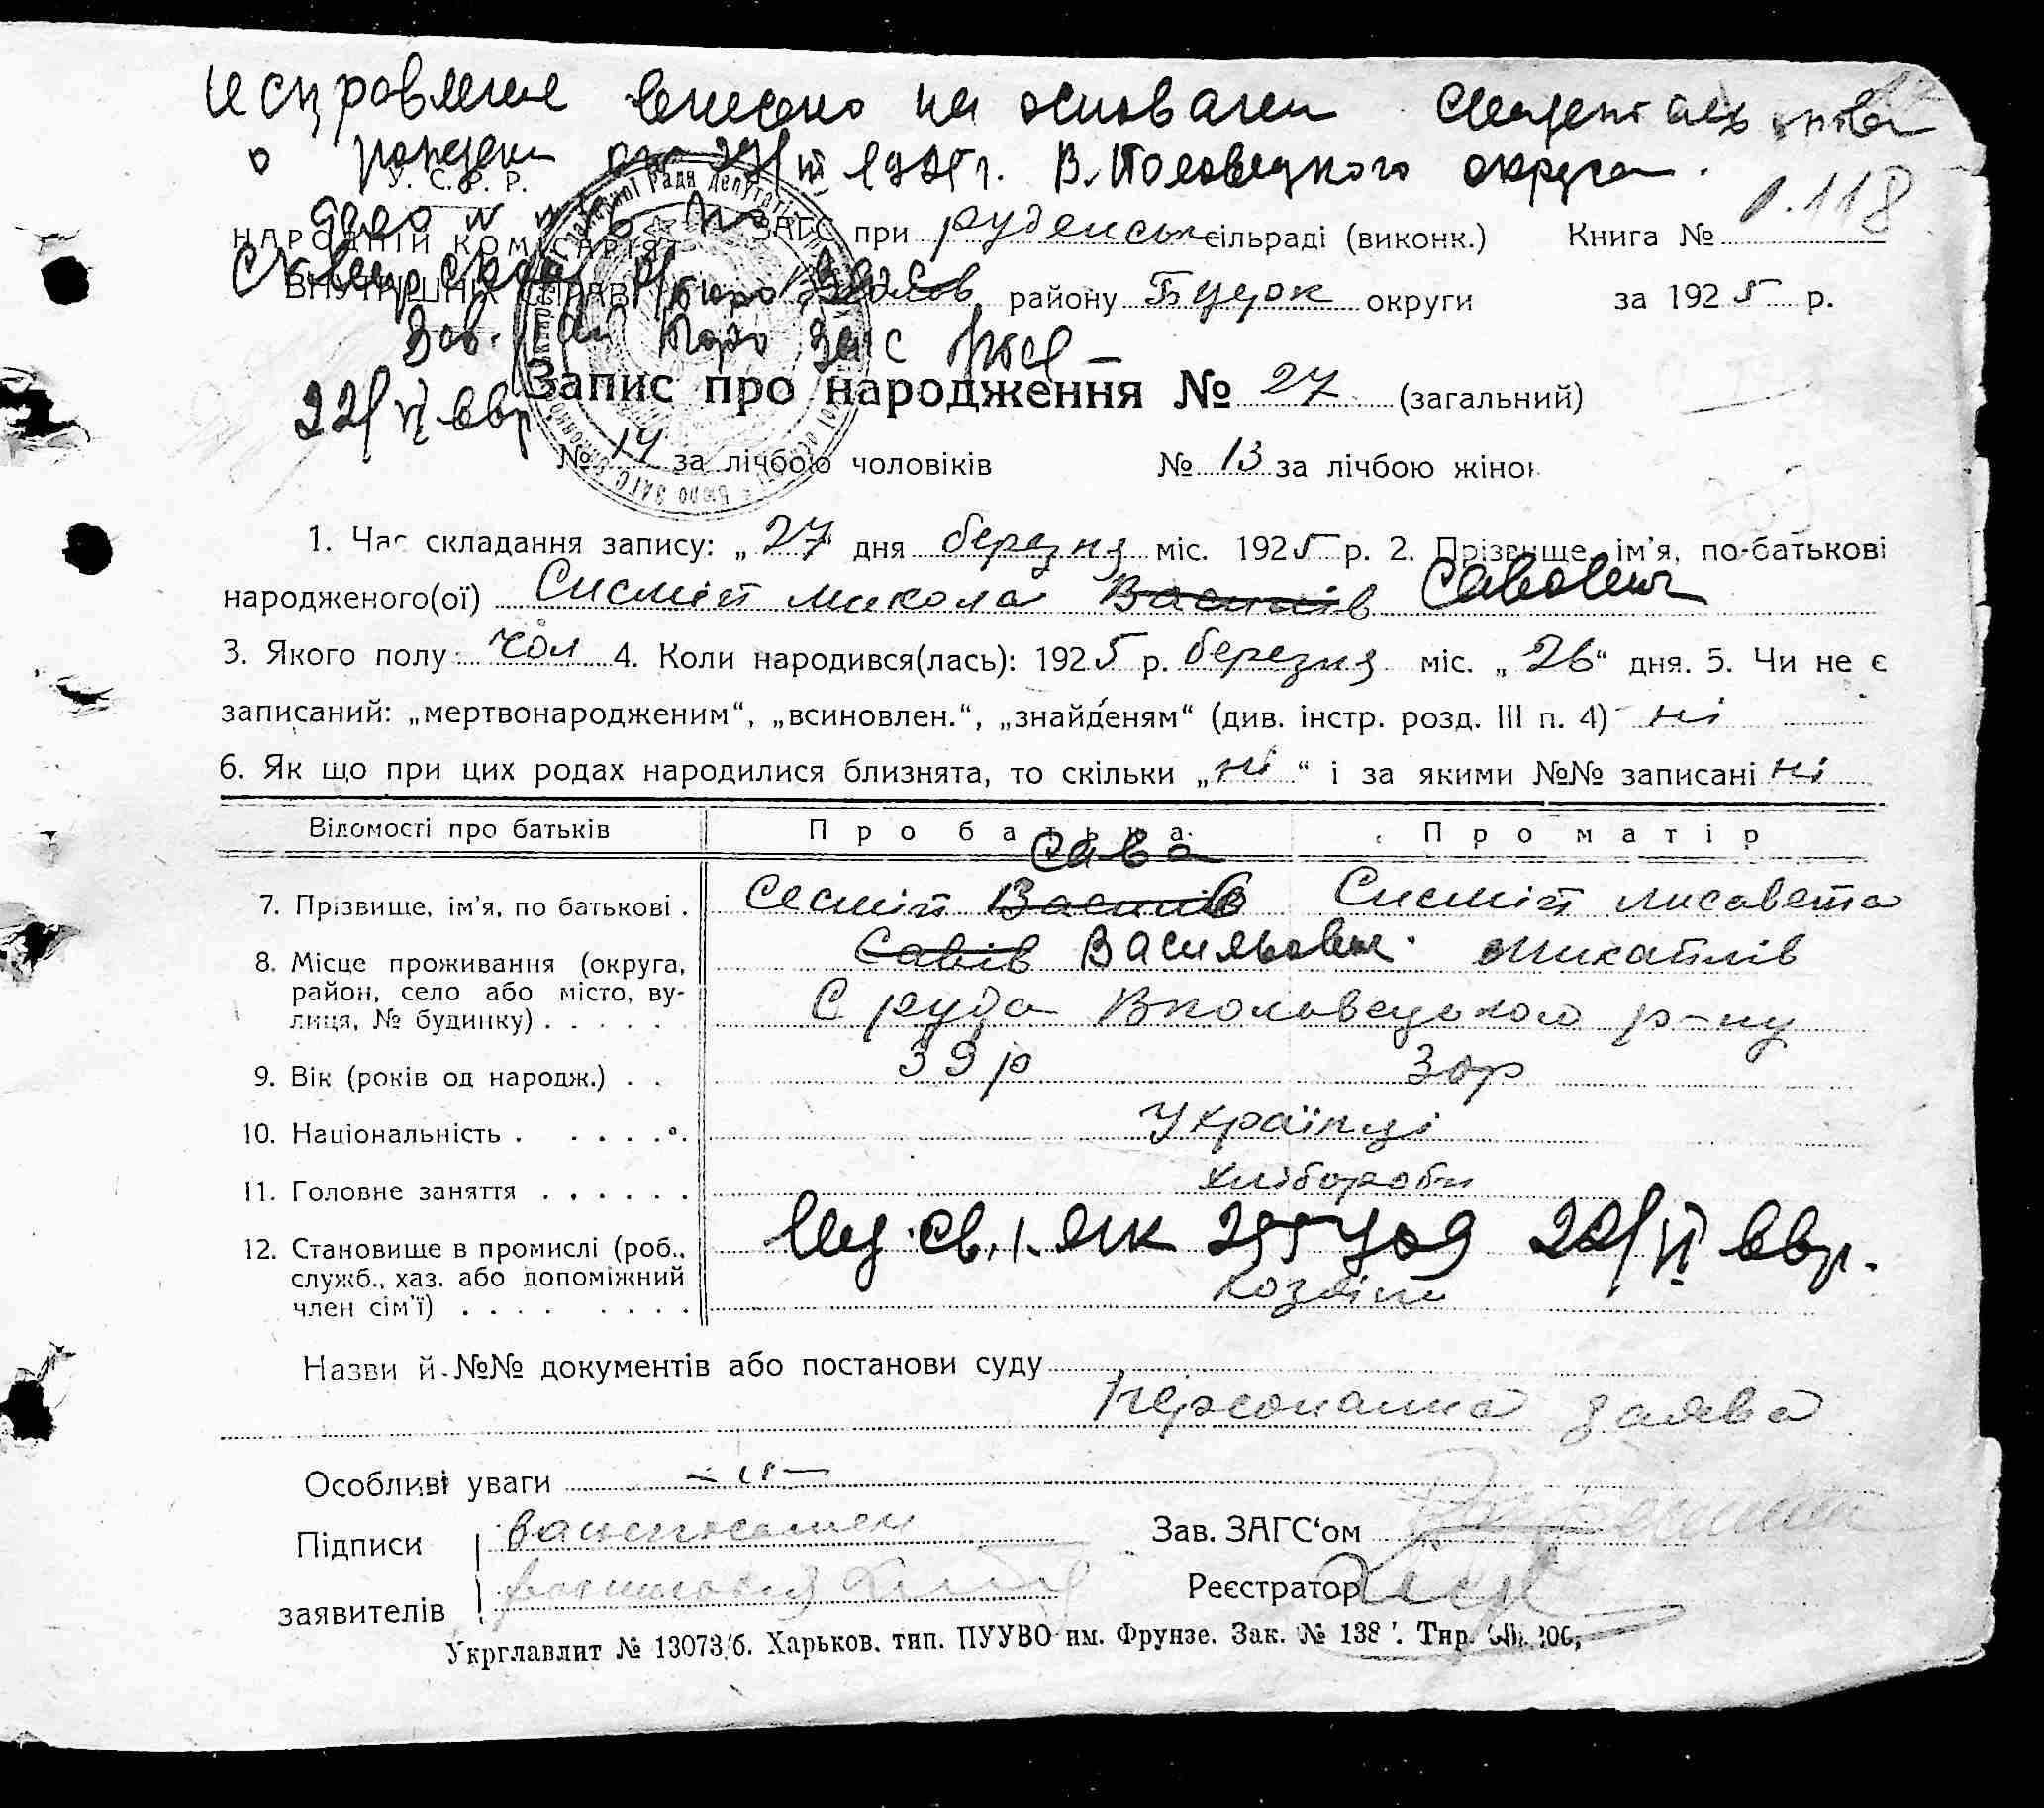 исправление внесено на основани
о рожден от 1925 г. В. Половецкого округа.
1.118
У. С. Р. Р.
НАРОДНІЙ КОМІСАРІЯТ ЗАГС при руденськ сільраді (виконк.) Книга №
ВНУТРІШНІХ СПРАВ району Б.Церк округи за 1925 р.
Зав. бюро загс
Запис про народження № 27 (загальний)
22/VI
№ 14 за лічбою чоловіків № 13 за лічбою жінок
1. Час складання запису: „27 дня березня міс. 1925 р. 2. Прізвище, ім'я, по-батькові
народженого(ої) Сисмій микола Василів Савович
3. Якого полу: чол 4. Коли народився(лась): 1925 р. березня міс. „26“ дня. 5. Чи не є
записаний: „мертвонародженим“, „всиновлен.“, „знайденям“ (див. інстр. розд. III п. 4) ні
6. Як що при цих родах народилися близнята, то скільки „ні“ і за якими №№ записані ні
Відомості про батьків Про батька Про матір
Сава
7. Прізвище, ім'я, по батькові . Сесмій Василів Сисмій лисавета
8. Місце проживання (округа, Савів Васильович михайлів
район, село або місто, ву- С руда Вполовецького р-ну
лиця, № будинку) . . . . .
9. Вік (років од народж.) . . 39 р 30 р
10. Національність . . . . . . Українці
11. Головне заняття . . . . . . хлібороби
12. Становище в промислі (роб., 22/VI
служб., хаз. або допоміжний козяїни
член сім'ї) . . . . . . . .
Назви й №№ документів або постанови суду
персональна заява
Особливі уваги — „ —
Підписи Зав. ЗАГС'ом
заявителів Реєстратор
Укрглавлит № 13073/б. Харьков. тип. ПУУВО им. Фрунзе. Зак. № 138